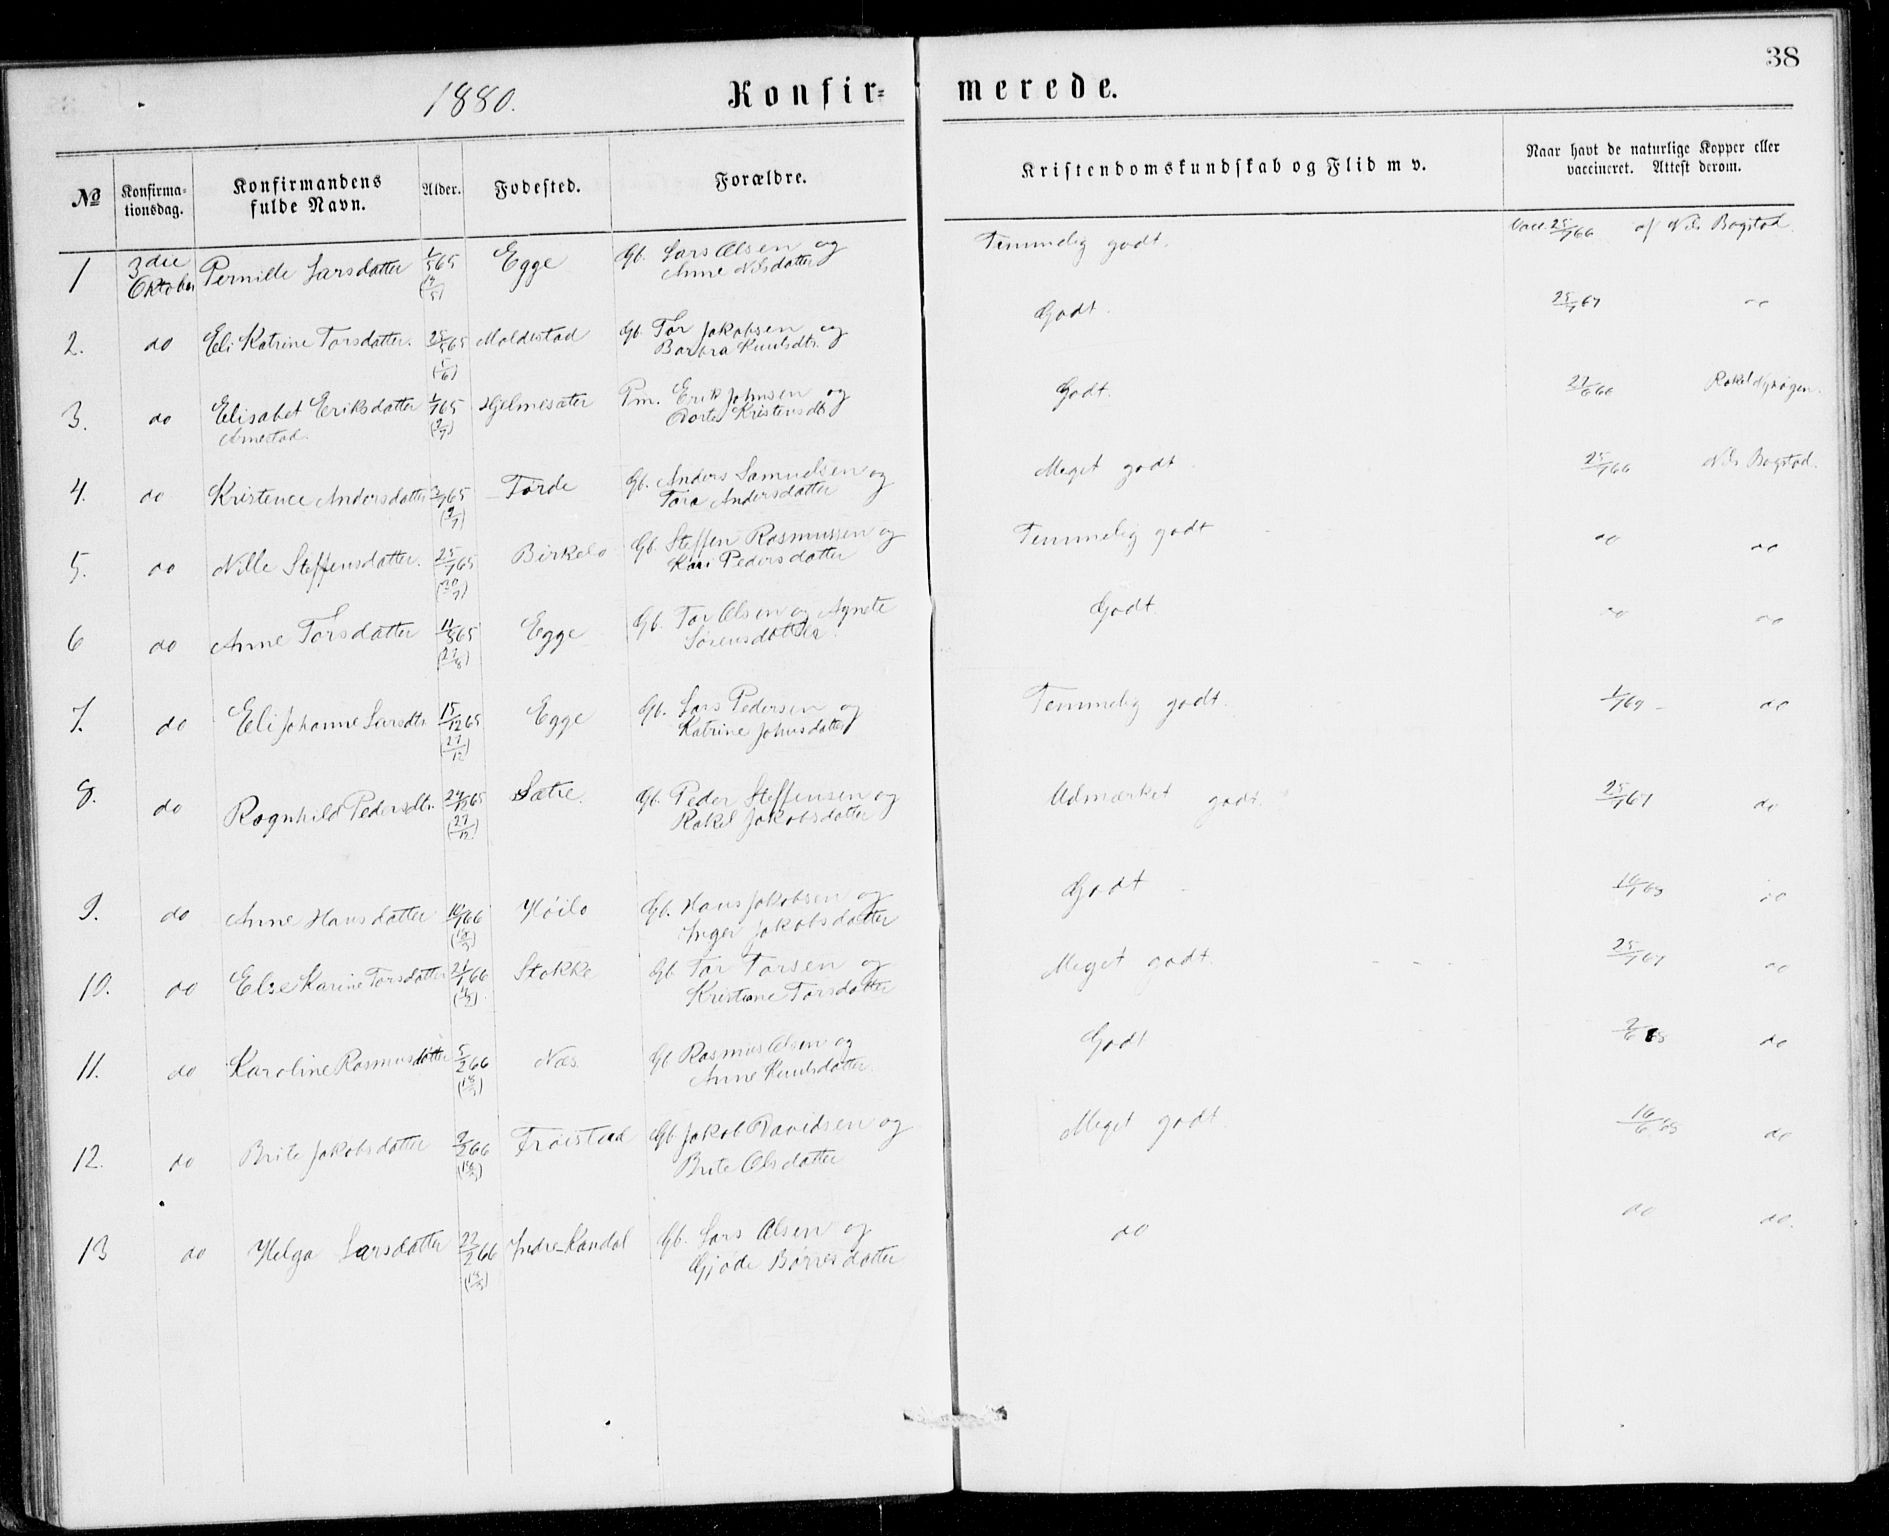 38
1880. Konfir= merede.
No Konfirma=tionsdag. Konfirmandens fulde Navn. Alder. Fodested. Forældre. Kristendomskundskab og Flid m v. Naar havt de naturlige Kopper eller vaccineret. Attest derom.
1 3die Oktober Pernille Larsdatter 1/5 65 Egge Gb. Lars Olsen og Anne Nilsdatter Temmelig godt. Vacc. 25/7 66 af Nils Bogstad.
2. do Eli Katrine Torsdatter. 25/5 65 (5/6) Moldestad Gb. Tor Jakobsen og Barbra Knutsdtr. Godt. 25/7 67 do
3. do Elisabet Eriksdatter Arnestad. 1/7 65 (9/7) Hjelmesæter Pm. Erik Johnsen og Dorte Kristensdtr Godt. 21/6 66 Rakel
4. do Kristence Andersdatter 3/7 65 (9/7) Förde Gb. Anders Samuelsen og Tora Andersdatter Meget godt. 25/7 66 Nils Bogstad.
5. do Nille Steffensdatter. 25/7 65 (30/7) Birkelo Gb. Steffen Rasmussen og Kari Pedersdatter Temmelig godt do do
6 do Anne Torsdatter 11/8 65 (27/8) Egge Gb. Tor Olsen og Agnete Sörensdatter. Godt. do do
7. do Eli Johanne Larsdtr. 15/12 65 (27/12) Egge Gb. Lars Pedersen og Katrine Johnsdatter Temmelig godt. 1/7 67 do
8. do Ragnhild Pedersdtr. 24/12 65 (27/12) Sætre. Gb. Peder Steffensen og Rakel Jakobsdatter Udmærket godt. 25/7 67 do
9. do Anne Hansdatter 10/1 66 Höilo Gb. Hans Jakobsen og Inger Jakobsdatter Godt do
10. do Else Karine Torsdatter 21/1 66 Stokke Gb. Tor Torsen og Kristiane Torsdatter Meget godt. 25/7 67 do
11. do Karoline Rasmusdatter 5/2 66 Næs. Gb Rasmus Olsen og Anne Knutsdatter. Godt do
12. do Brite Jakobsdatter 9/2 66 Fröistad Gb. Jakob Davidsen og Brite Olsdatter Meget godt do
13 do Helga Larsdatter 22/2 66 Indre-Kandal Gb. Lars Olsen og Gjöde Börresdatter do do do.